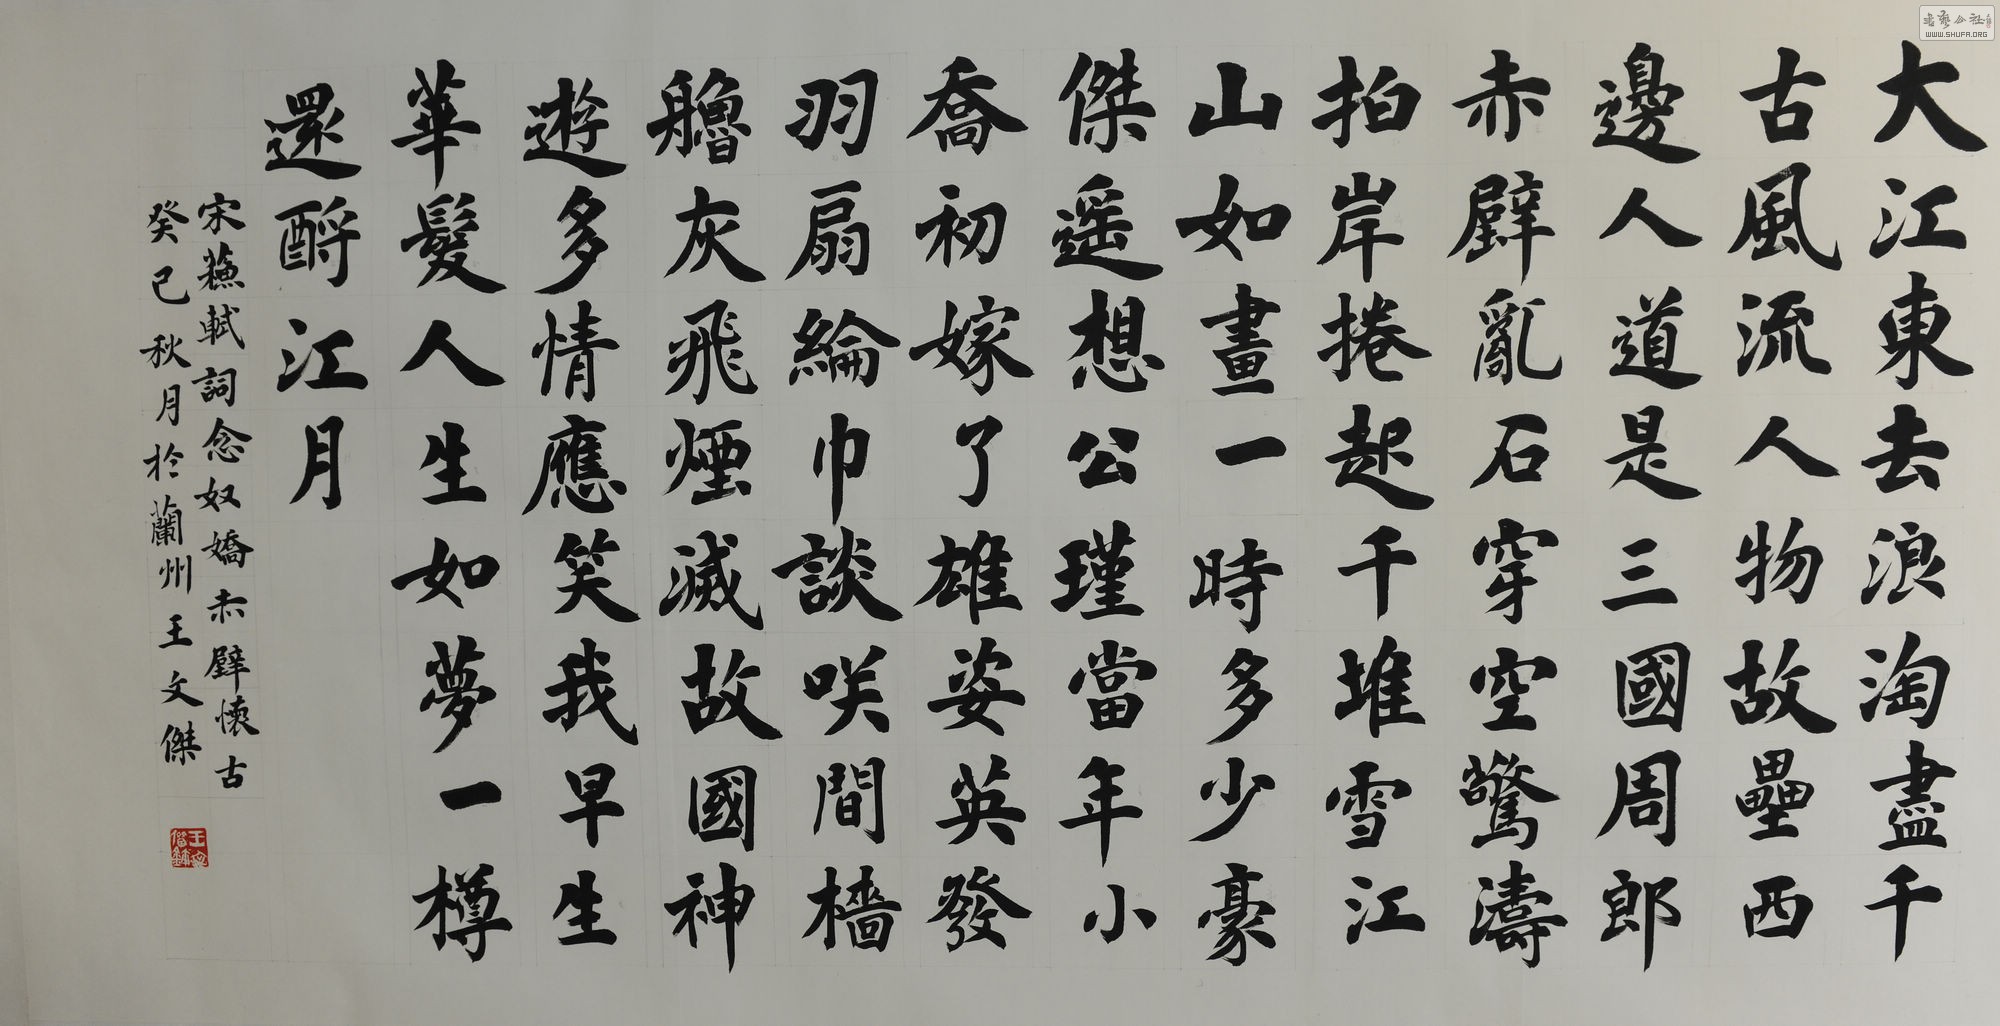 大江東去浪淘盡千
古風流人物故壘西
邊人道是三國周郎
赤壁亂石穿空驚濤
拍岸捲起千堆雪江
山如畫一時多少豪
傑遥想公瑾當年小
喬初嫁了雄姿英發
羽扇綸巾談咲間檣
艣灰飛煙滅故國神
遊多情應笑我早生
華髮人生如夢一樽
還酹江月
宋蘇軾詞念奴嬌赤壁懷古
癸巳秋月於蘭州王文傑
書藝公社
WWW.SHUFA.ORG